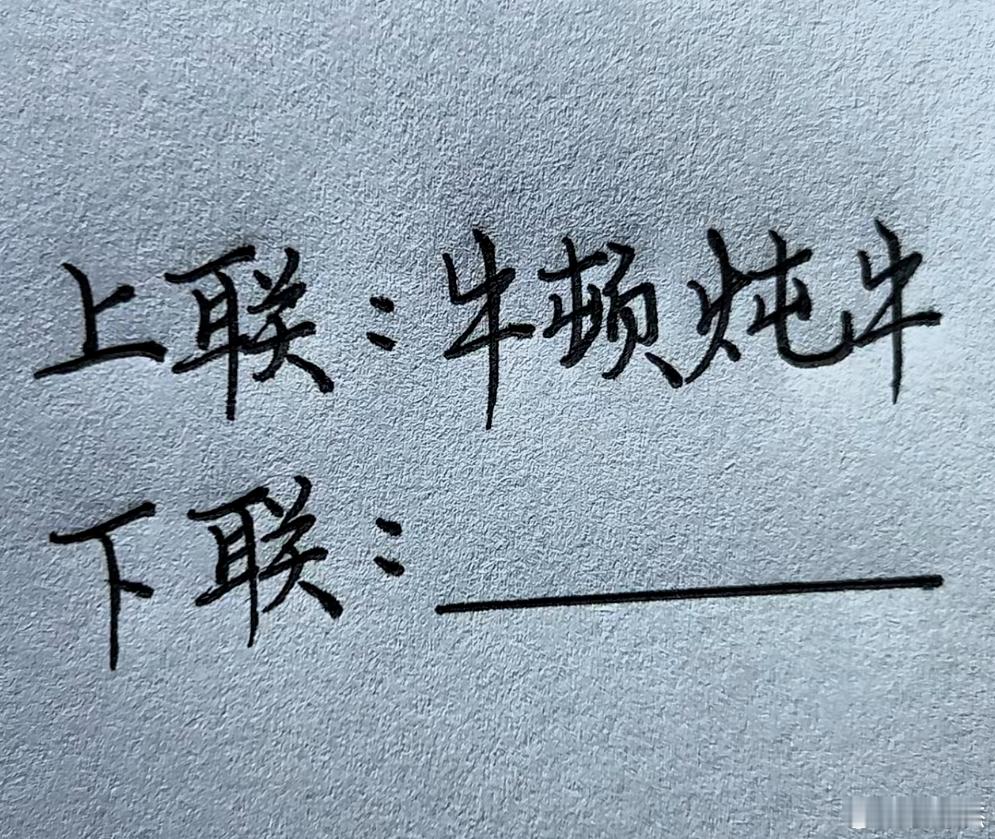 上联：牛顿炖牛
下联：